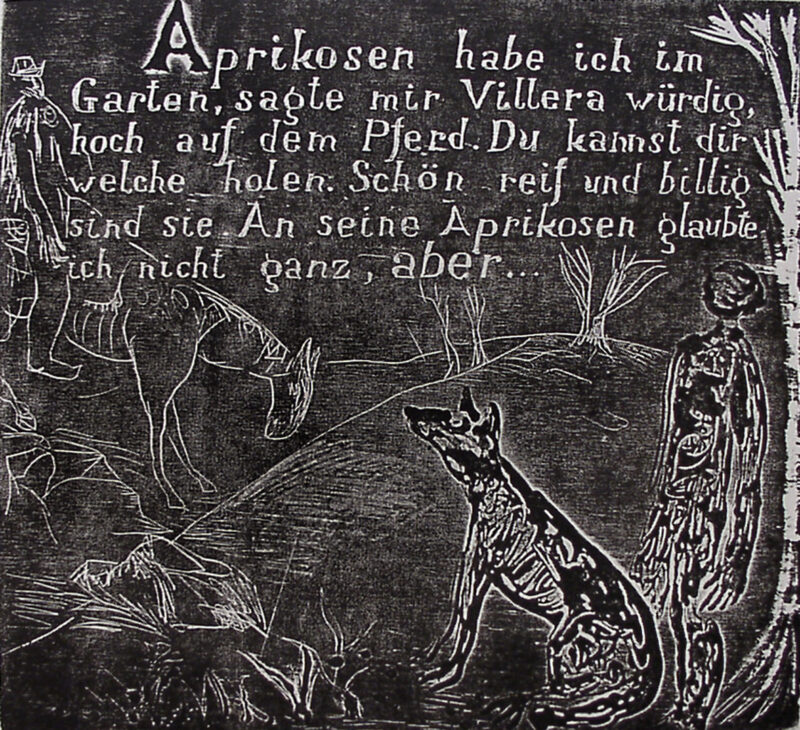 Aprikosen habe ich im
Garten, sagte mir Villera würdig,
hoch auf dem Pferd. Du kannst dir
welche holen. Schön reif und billig
sind sie. An seine Aprikosen glaubte
ich nicht ganz, aber...